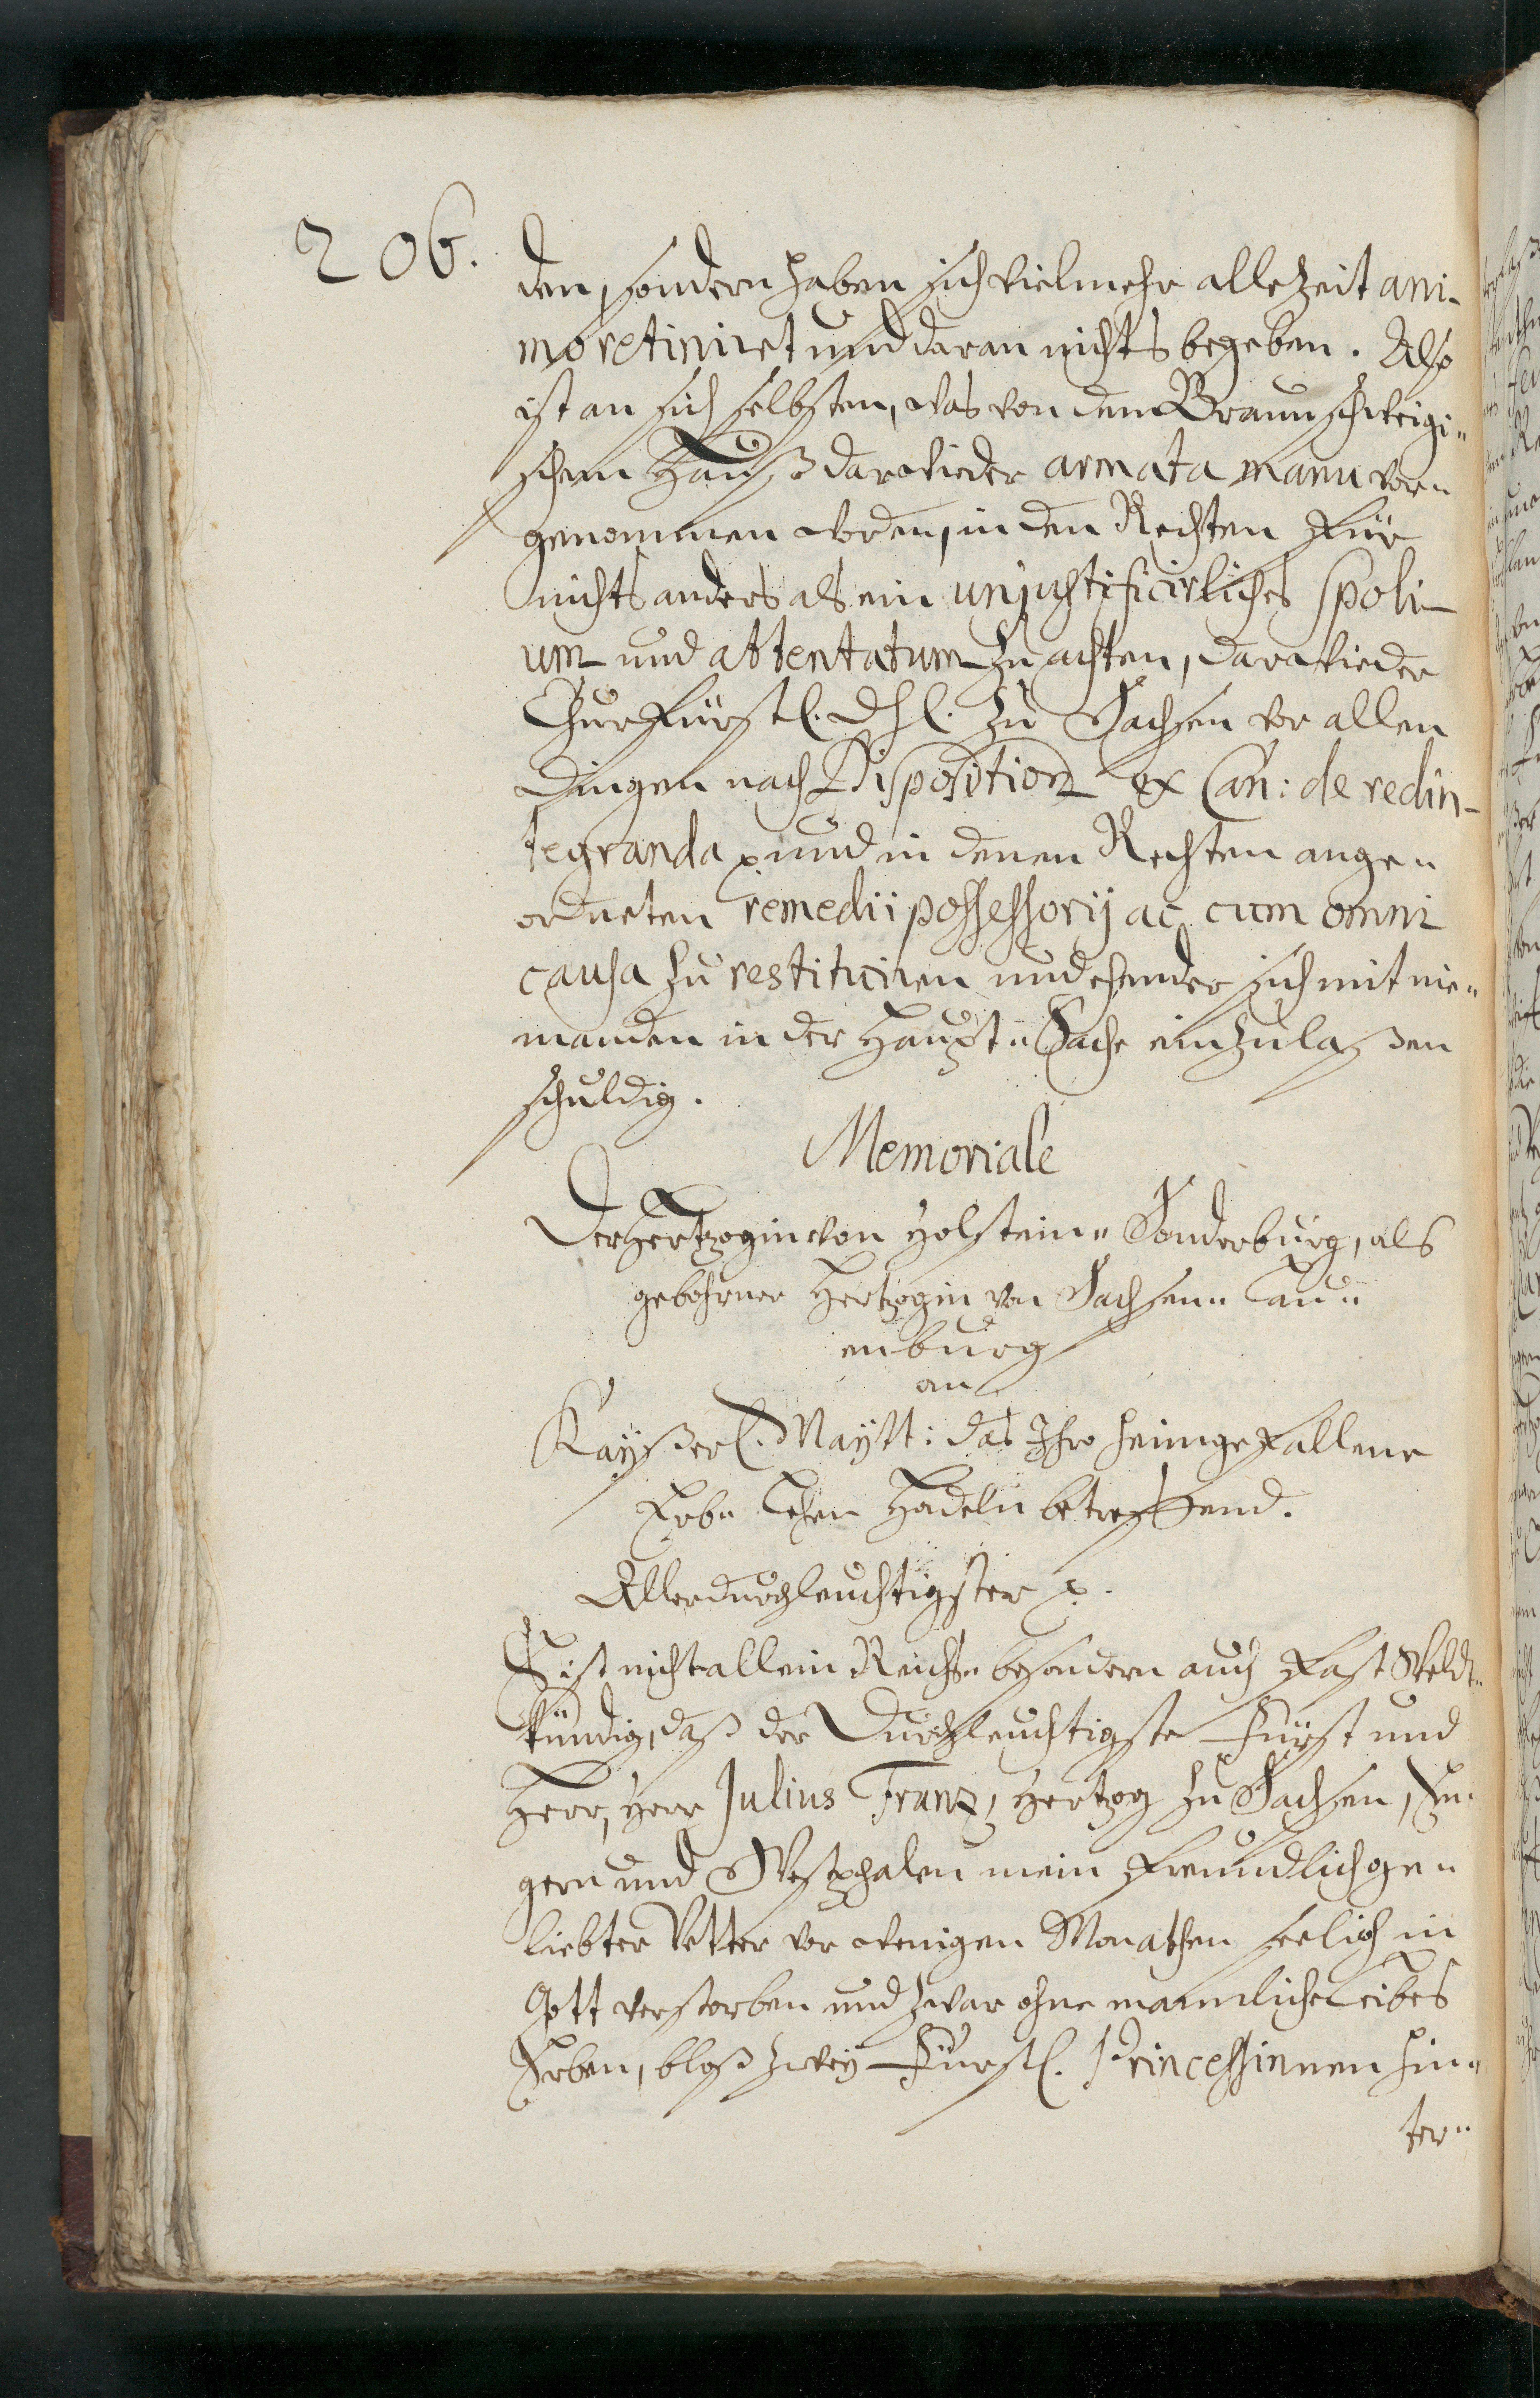 206.
den, sondern haben sich vielmehr allezeit ani-
mo retiniret und daran nichts begeben. Also
ist an sich selbsten, was von dem Braunschweigi-
schen Hauß darwieder armata manu vor-
genommen worden, in den Rechten für
nichts anders als ein unjustificirliches spoli-
um und attentatum zu achten, darwieder
Churfürstl. Dhl. zu Sachsen vor allen
Dingen nach Disposition ex Can: de redin-
tegranda p und in denen Rechten ange-
ordneten remedii possessorij ac cum omni
causa zu restituiren und ehender sich mit nie-
manden in der Haupt-Sache einzulaßen
schuldig.
Memoriale
Der Hertzogin von Holstein-Sonderburg, als
gebohrner Hertzogin von Sachsen-Lau-
enburg
an
Kayßerl. Maytt: das Ihro heimgefallene
Erb-Lehen Hadeln betreffend.
Allerdurchleuchtigster p.
Es ist nicht allein Reichs- besondern auch fast Welt-
kündig, daß der Durchleuchtigste Fürst und
Herr, Herr Julius Franz, Hertzog zu Sachsen, En-
gern und Westphalen mein freundlich ge-
liebter Vetter vor wenigen Monathen seelich in
Gott verstorben und zwar ohne mannliche Leibes
Erben, bloß zwey Fürstl. Princessinnen hin-
ter-